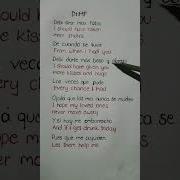 DtMF
Debí tirar más fotos
I should have taken
more photos
De cuando te tuve
From when I had you
Debí darte más beso y
I should have given you
more kisses and hugs
Las veces que pude
Every chance I had
Ojalá que los míos nunca se muden
I hope my loved ones
never move away
Y si hoy me emborracho
And if I get drunk today
Pues que me ayuden
Let them help me